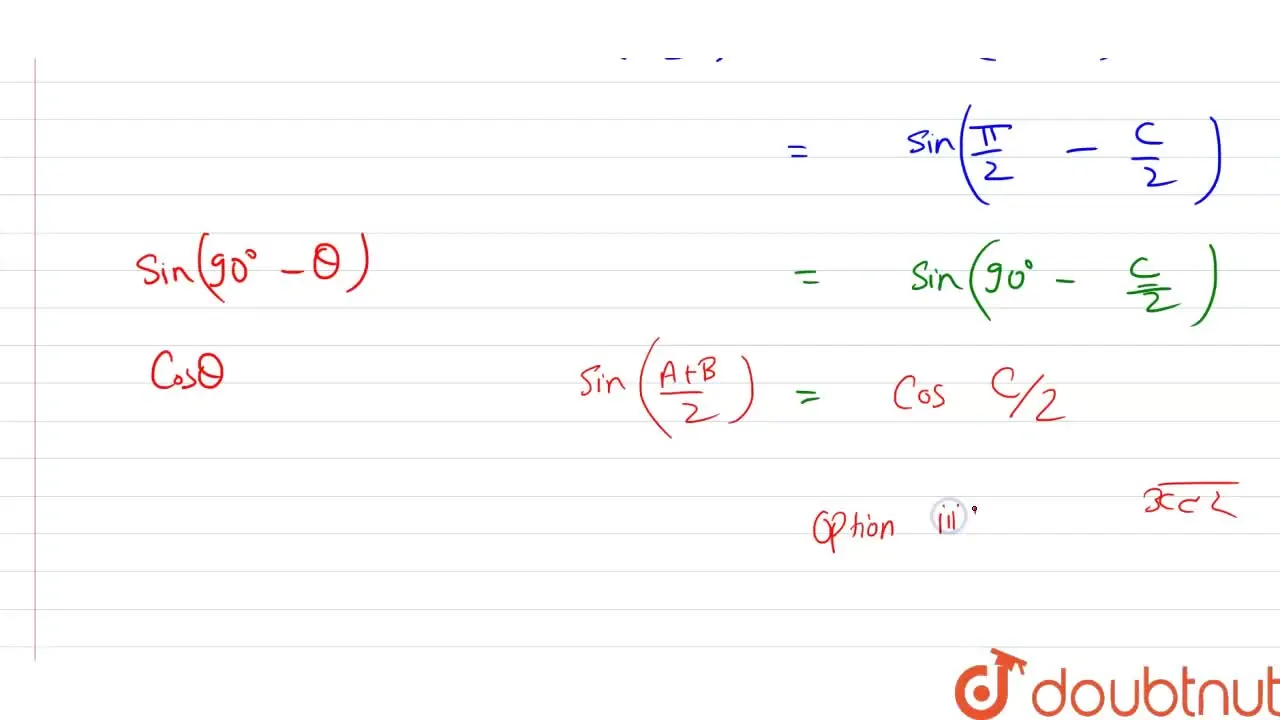 = sin(π/2 - C/2)
sin(90° - θ)
= sin(90° - C/2)
Cosθ
sin(A+B/2) = Cos C/2
Option iii
doubtnut